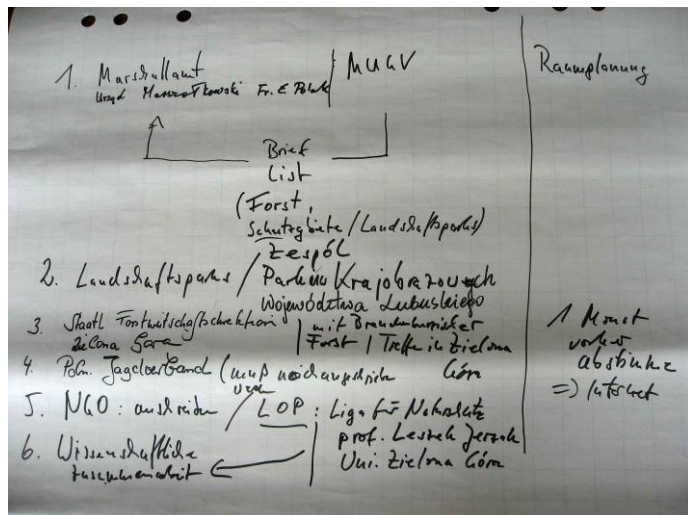 1. Marschallamt | MUGV
Urząd Marszałkowski Fr. E Polak
Brief
List
(Forst,
Schutzgebiete / Landschaftsparks)
Zespół
2. Landschaftsparks / Parków Krajobrazowych
Województwa Lubuskiego
3. Staatl Forstwirtschaftsdirektion | mit Brandenburgischer
Zielona Gora | Forst | Treffen in Zielona
Góra
4. Poln. Jagdverband (muß noch angeschrieben
werden
5. NGO: anschreiben / LOP: Liga für Naturschutz
prof. Leszek Jerzak
Uni. Zielona Góra
6. Wissenschaftliche
Zusammenarbeit
Raumplanung
1 Monat
vorher
=> Internet